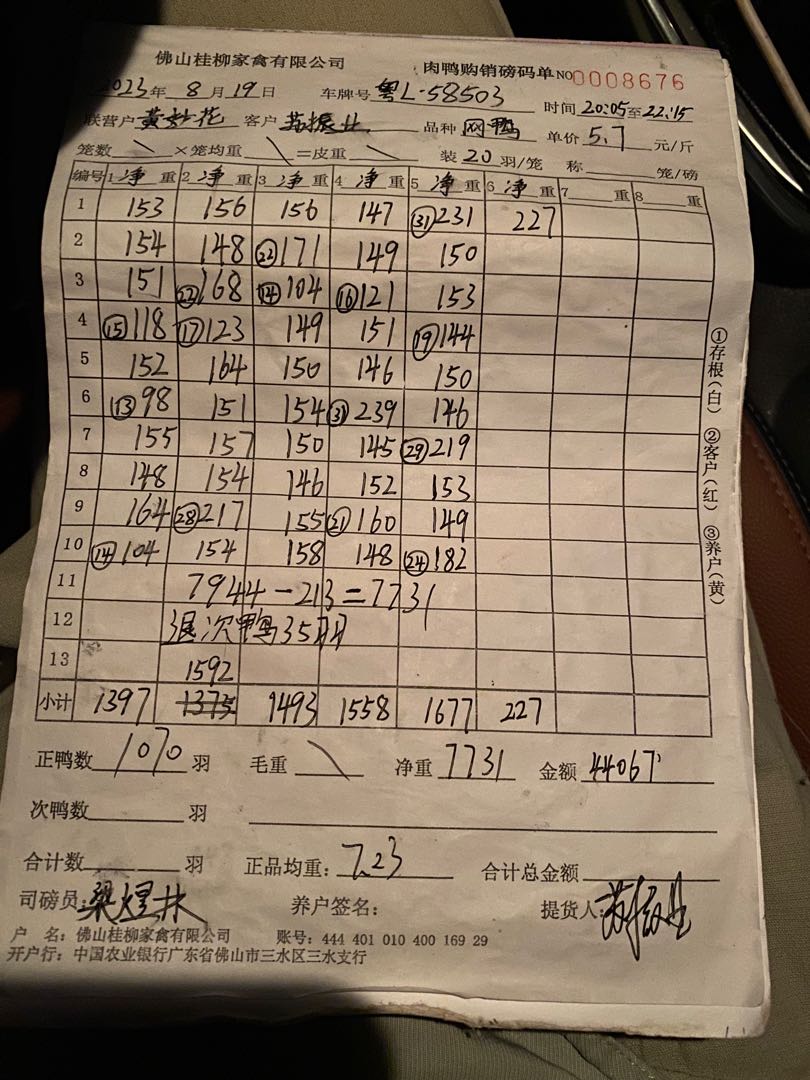 佛山桂柳家禽有限公司 肉鸭购销磅码单 NO 0008676
2023年 8月 19日 车牌号 粤L·58503 时间 20:05至22:15
联营户 黄妙花 客户 苏振业 品种 网鸭 单价 5.7 元/斤
笼数 \ ×笼均重 \ =皮重 \ 装 20 羽/笼 称 笼/磅
编号 1 净 重 2 净 重 3 净 重 4 净 重 5 净 重 6 净 重 7 重 8 重
1 153 156 156 147 ㉛231 227
2 154 148 ㉒171 149 150
3 151 ㉒168 ⑭104 ⑯121 153
4 ⑮118 ⑰123 149 151 ⑲144
5 152 164 150 146 150
6 ⑬98 151 154 ㉛239 146
7 155 157 150 145 ㉙219
8 148 154 146 152 153
9 164 ㉘217 155 ㉑160 149
10 ⑭104 154 158 148 ㉔182
11 7944-213=7731
12 退次鸭35羽
13 1592
小计 1397 1375 1493 1558 1677 227
正鸭数 1070 羽 毛重 \ 净重 7731 金额 44067
次鸭数 羽
合计数 羽 正品均重: 7.23 合计总金额
司磅员: 梁煜林 养户签名: 提货人: 苏振业
户 名: 佛山桂柳家禽有限公司 账号: 444 401 010 400 169 29
开户行: 中国农业银行广东省佛山市三水区三水支行
①存根(白) ②客户(红) ③养户(黄)